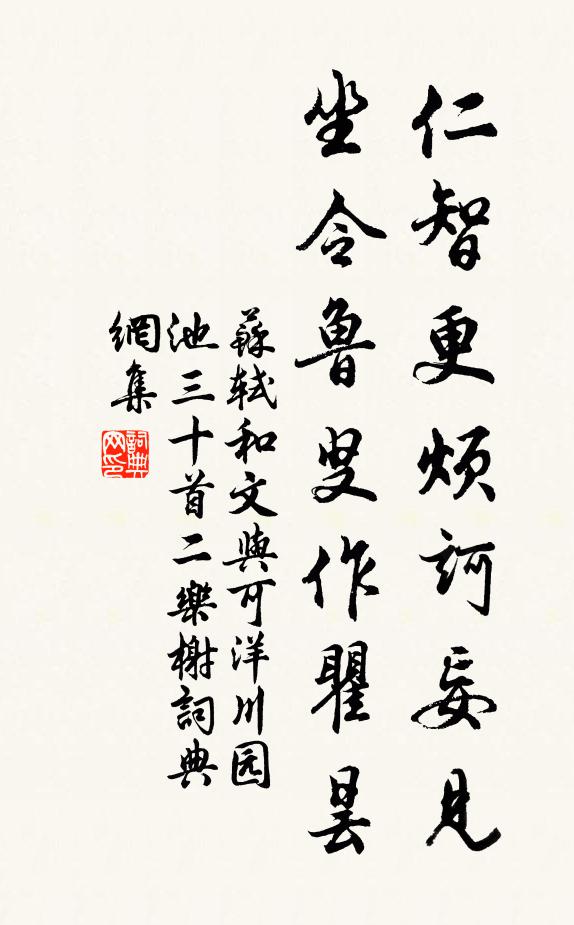 仁智更烦訶妄見
坐令魯叟作瞿曇
蘇軾和文與可洋川园
池三十首二樂榭詞典
網集
詞典
网印